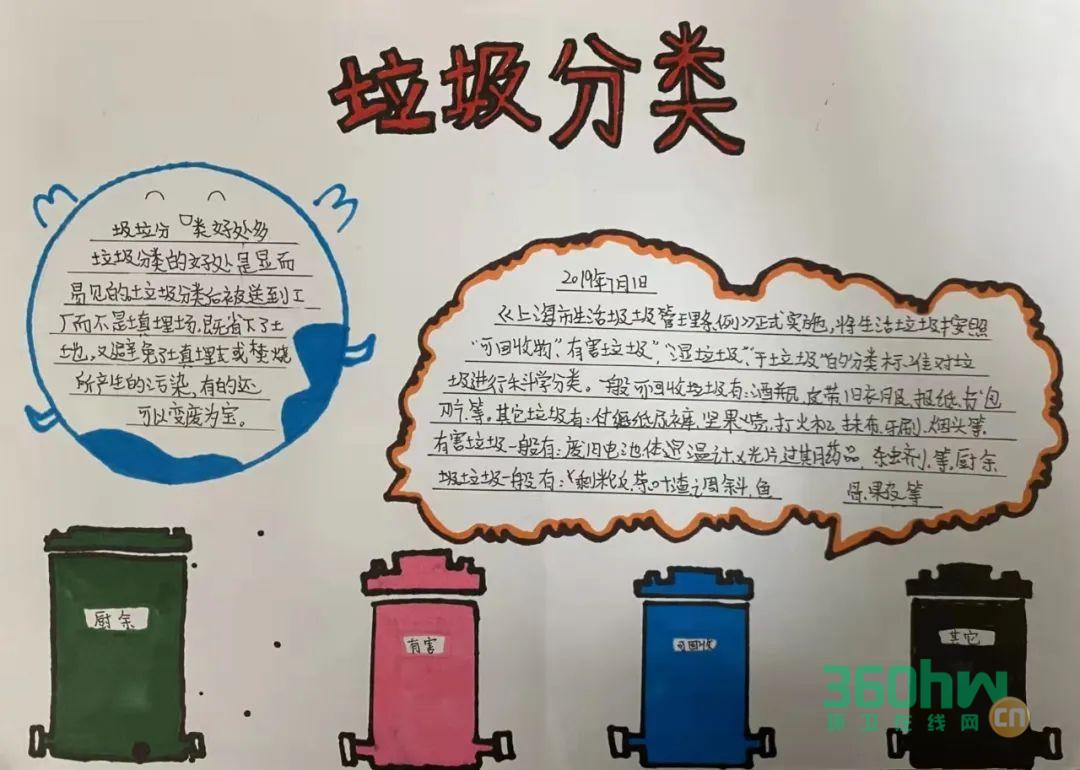 垃圾分类
圾垃分类好处多
垃圾分类的好处是显而
易见的垃圾分类后被送到工
厂而不是填埋场,既省下了土
地,又避免了填埋或焚烧
所产生的污染,有的还
可以变废为宝。
2019年7月1日
《上海市生活垃圾管理条例》正式实施,将生活垃圾按照
“可回收物”、有害垃圾”,“湿垃圾”、“干垃圾”的分类标准对垃
圾进行科学分类。一般可回收垃圾有:酒瓶,皮带旧衣服,报纸,包
等,其它垃圾有:纸尿裤,坚果壳,打火机,抹布,牙刷,烟头等,
有害垃圾一般有:废旧电池体温计,X光片过期药品,杀虫剂,等,厨余
圾垃圾一般有:剩米饭,茶叶渣,调料,鱼 骨,果皮等
厨余
有害
可回收
其它
360hw
环卫在线网
CN